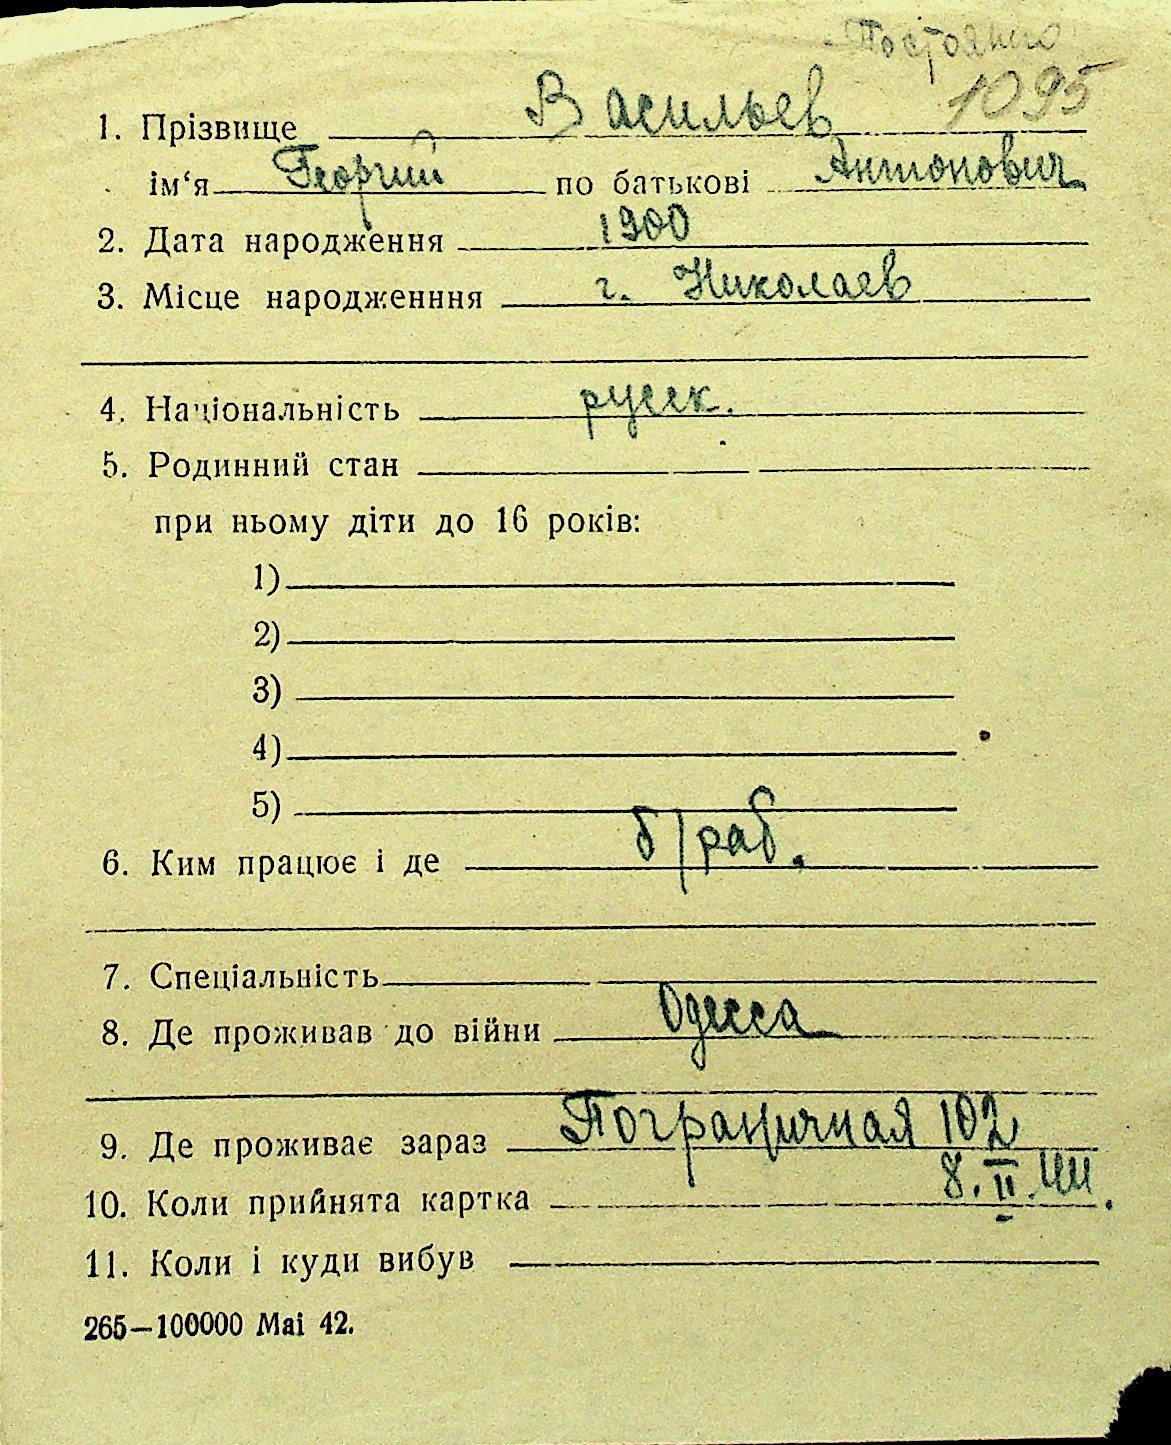 Постоянно
1095
1. Прізвище Васильев
ім‘я Георгий по батькові Антонович
2. Дата народження 1900
3. Місце народженння г. Николаев
4. Національність русск.
5. Родинний стан
при ньому діти до 16 років:
1)
2)
3)
4)
5)
6. Ким працює і де б/раб.
7. Спеціальність
8. Де проживав до війни Одесса
9. Де проживає зараз Пограничная 102
10. Коли прийнята картка 8.II.44.
11. Коли і куди вибув
265—100000 Mai 42.